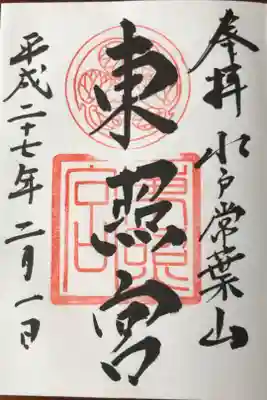 奉拝 水戸常葉山
東照宮
平成二十七年二月一日